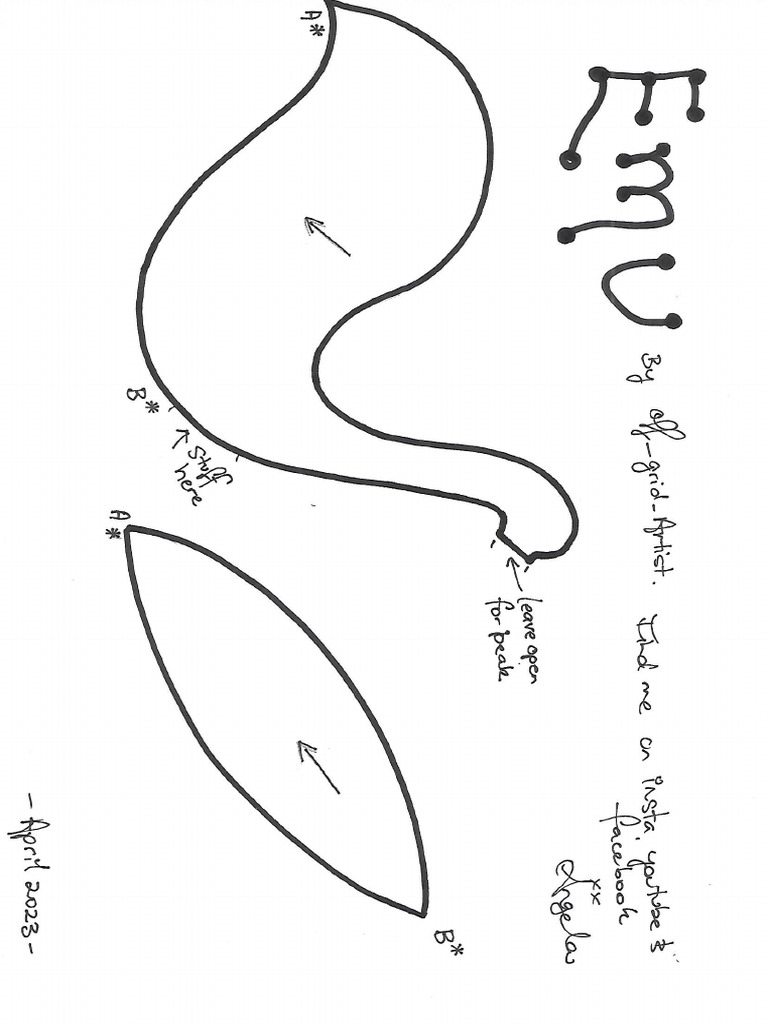 Emu
By off-grid-Artist. Find me on insta, youtube &
facebook
xx
Angela
leave open
for peak.
A*
B*
stuff
here
A*
B*
- April 2023 -